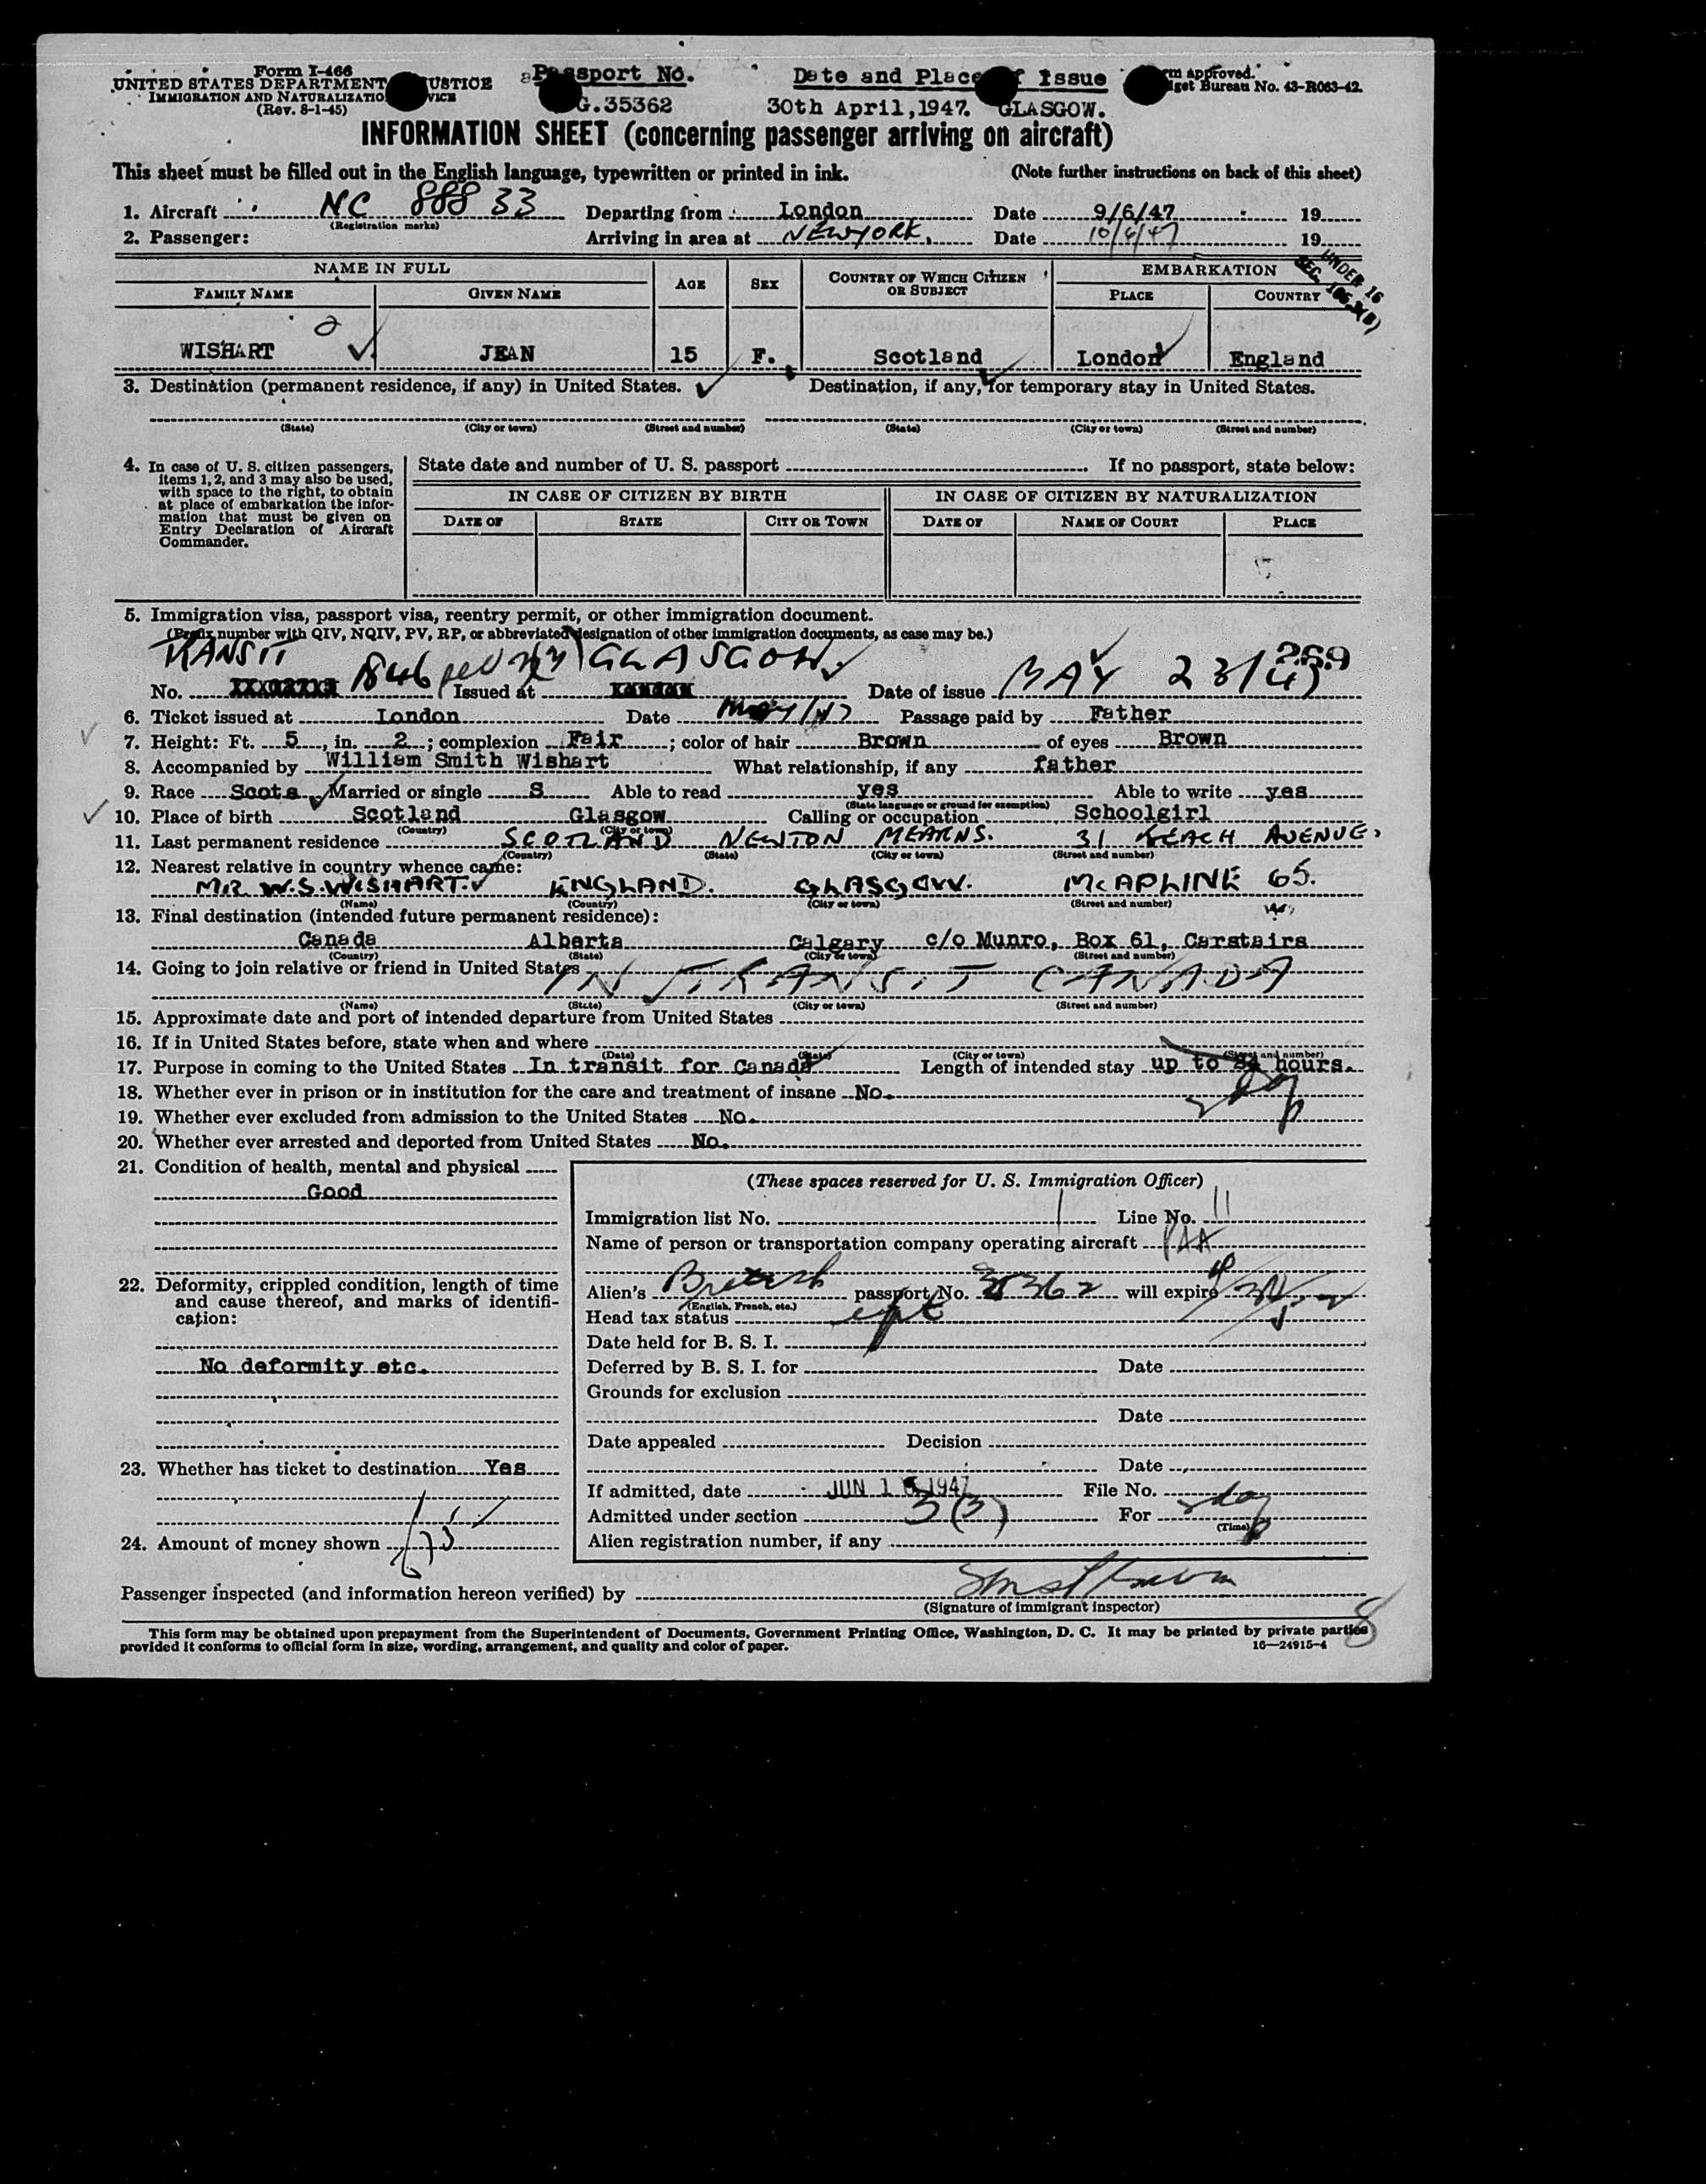 Form I-466
UNITED STATES DEPARTMENT JUSTICE
IMMIGRATION AND NATURALIZATIO VICE
(Rev. 8-1-45)
Passport No. Date and Place of Issue
G.35362 30th April, 1947. GLASGOW.
rm approved.
dget Bureau No. 43-R063-42.
INFORMATION SHEET (concerning passenger arriving on aircraft)
This sheet must be filled out in the English language, typewritten or printed in ink. (Note further instructions on back of this sheet)
1. Aircraft NC 88833 Departing from London Date 9/6/47 19
(Registration marks)
2. Passenger: Arriving in area at NEWYORK. Date 10/6/47 19
UNDER 16
NAME IN FULL AGE SEX COUNTRY OF WHICH CITIZEN OR SUBJECT EMBARKATION
FAMILY NAME GIVEN NAME PLACE COUNTRY
WISHART JEAN 15 F. Scotland London England
3. Destination (permanent residence, if any) in United States. Destination, if any, for temporary stay in United States.
(State) (City or town) (Street and number) (State) (City or town) (Street and number)
4. In case of U. S. citizen passengers, items 1, 2, and 3 may also be used, with space to the right, to obtain at place of embarkation the information that must be given on Entry Declaration of Aircraft Commander.
State date and number of U. S. passport If no passport, state below:
IN CASE OF CITIZEN BY BIRTH IN CASE OF CITIZEN BY NATURALIZATION
DATE OF STATE CITY OR TOWN DATE OF NAME OF COURT PLACE
5. Immigration visa, passport visa, reentry permit, or other immigration document.
(Prefix number with QIV, NQIV, PV, RP, or abbreviated designation of other immigration documents, as case may be.)
TRANSIT 269
No. 1846 Issued at GLASGOW Date of issue MAY 23/47
6. Ticket issued at London Date May/47 Passage paid by Father
7. Height: Ft. 5, in. 2; complexion Fair; color of hair Brown of eyes Brown
8. Accompanied by William Smith Wishart What relationship, if any father
9. Race Scots Married or single S Able to read yes Able to write yes
(State language or ground for exemption)
10. Place of birth Scotland Glasgow Calling or occupation Schoolgirl
(Country) (City or town)
11. Last permanent residence SCOTLAND NEWTON MEARNS. 31 AVENUE.
(Country) (State) (City or town) (Street and number)
12. Nearest relative in country whence came:
MR W.S. WISHART. ENGLAND. GLASGOW. McAPLINE 65.
(Name) (Country) (City or town) (Street and number)
13. Final destination (intended future permanent residence):
Canada Alberta Calgary c/o Munro, Box 61, Carstairs
(Country) (State) (City or town) (Street and number)
14. Going to join relative or friend in United States IN TRANSIT CANADA
(Name) (State) (City or town) (Street and number)
15. Approximate date and port of intended departure from United States
16. If in United States before, state when and where
(Date) (State) (City or town) (Street and number)
17. Purpose in coming to the United States In transit for Canada Length of intended stay up to 24 hours.
18. Whether ever in prison or in institution for the care and treatment of insane No.
19. Whether ever excluded from admission to the United States No.
20. Whether ever arrested and deported from United States No.
21. Condition of health, mental and physical
Good
22. Deformity, crippled condition, length of time and cause thereof, and marks of identification:
No deformity etc.
23. Whether has ticket to destination Yes
24. Amount of money shown
(These spaces reserved for U. S. Immigration Officer)
Immigration list No. 1 Line No. 11
Name of person or transportation company operating aircraft PAA
Alien's British passport No. 35362 will expire
(English, French, etc.)
Head tax status
Date held for B. S. I.
Deferred by B. S. I. for Date
Grounds for exclusion
Date
Date appealed Decision
Date
If admitted, date JUN 10 1947 File No.
Admitted under section 3(3) For
(Time)
Alien registration number, if any
Passenger inspected (and information hereon verified) by
(Signature of immigrant inspector)
This form may be obtained upon prepayment from the Superintendent of Documents, Government Printing Office, Washington, D. C. It may be printed by private parties
provided it conforms to official form in size, wording, arrangement, and quality and color of paper. 16—24915-4